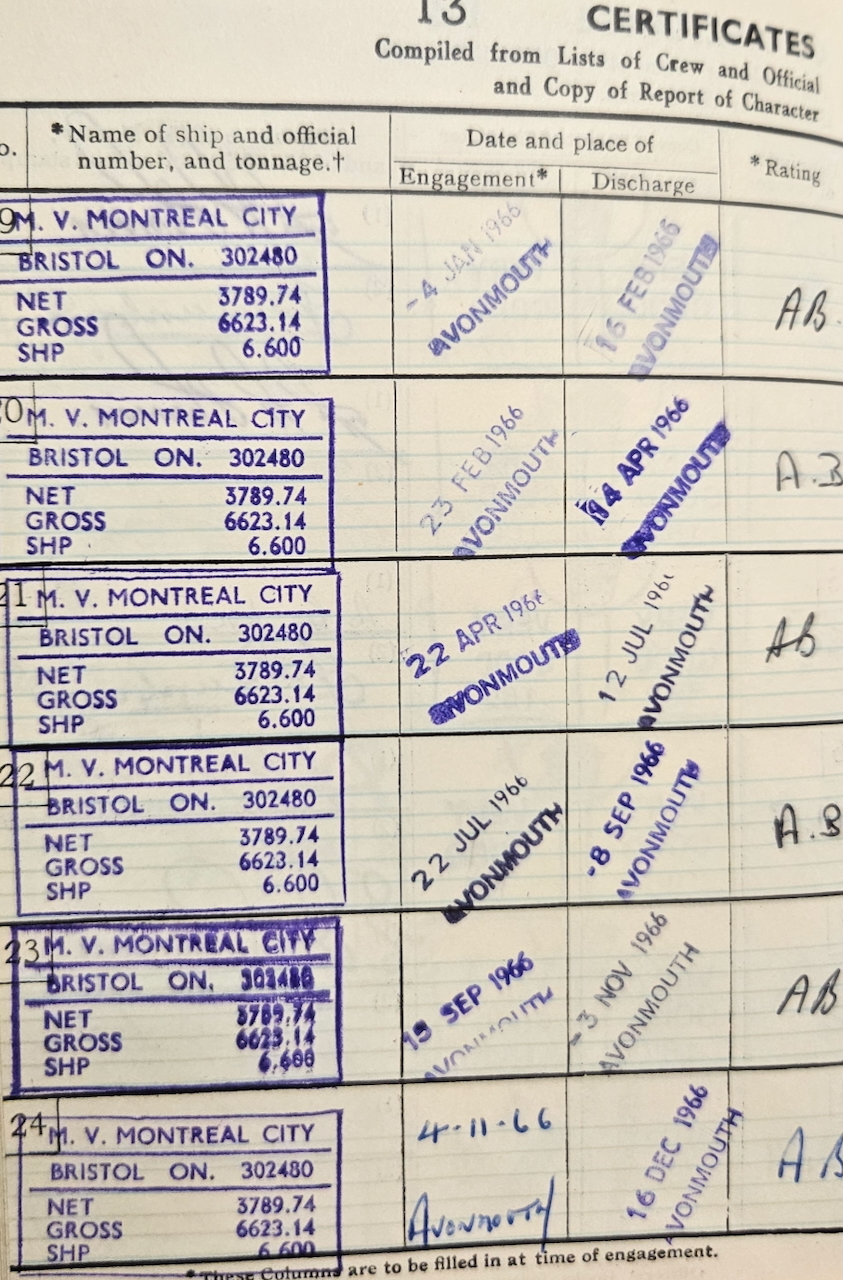 13 CERTIFICATES
Compiled from Lists of Crew and Official
and Copy of Report of Character
o. *Name of ship and official number, and tonnage.† Date and place of *Rating
Engagement* Discharge
9 M. V. MONTREAL CITY
BRISTOL ON. 302480
NET 3789.74
GROSS 6623.14
SHP 6.600
-4 JAN 1966
AVONMOUTH
16 FEB 1966
AVONMOUTH
AB.
20 M. V. MONTREAL CITY
BRISTOL ON. 302480
NET 3789.74
GROSS 6623.14
SHP 6.600
23 FEB 1966
AVONMOUTH
14 APR 1966
AVONMOUTH
A.B
21 M. V. MONTREAL CITY
BRISTOL ON. 302480
NET 3789.74
GROSS 6623.14
SHP 6.600
22 APR 1966
AVONMOUTH
12 JUL 1966
AVONMOUTH
AB
22 M. V. MONTREAL CITY
BRISTOL ON. 302480
NET 3789.74
GROSS 6623.14
SHP 6.600
22 JUL 1966
AVONMOUTH
-8 SEP 1966
AVONMOUTH
A.B
23 M. V. MONTREAL CITY
BRISTOL ON. 302480
NET 3789.74
GROSS 6623.14
SHP 6.600
SEP 1966
AVONMOUTH
-3 NOV 1966
AVONMOUTH
AB
24 M. V. MONTREAL CITY
BRISTOL ON. 302480
NET 3789.74
GROSS 6623.14
SHP 6.600
4-11-66
Avonmouth
16 DEC 1966
AVONMOUTH
AB
*These Columns are to be filled in at time of engagement.